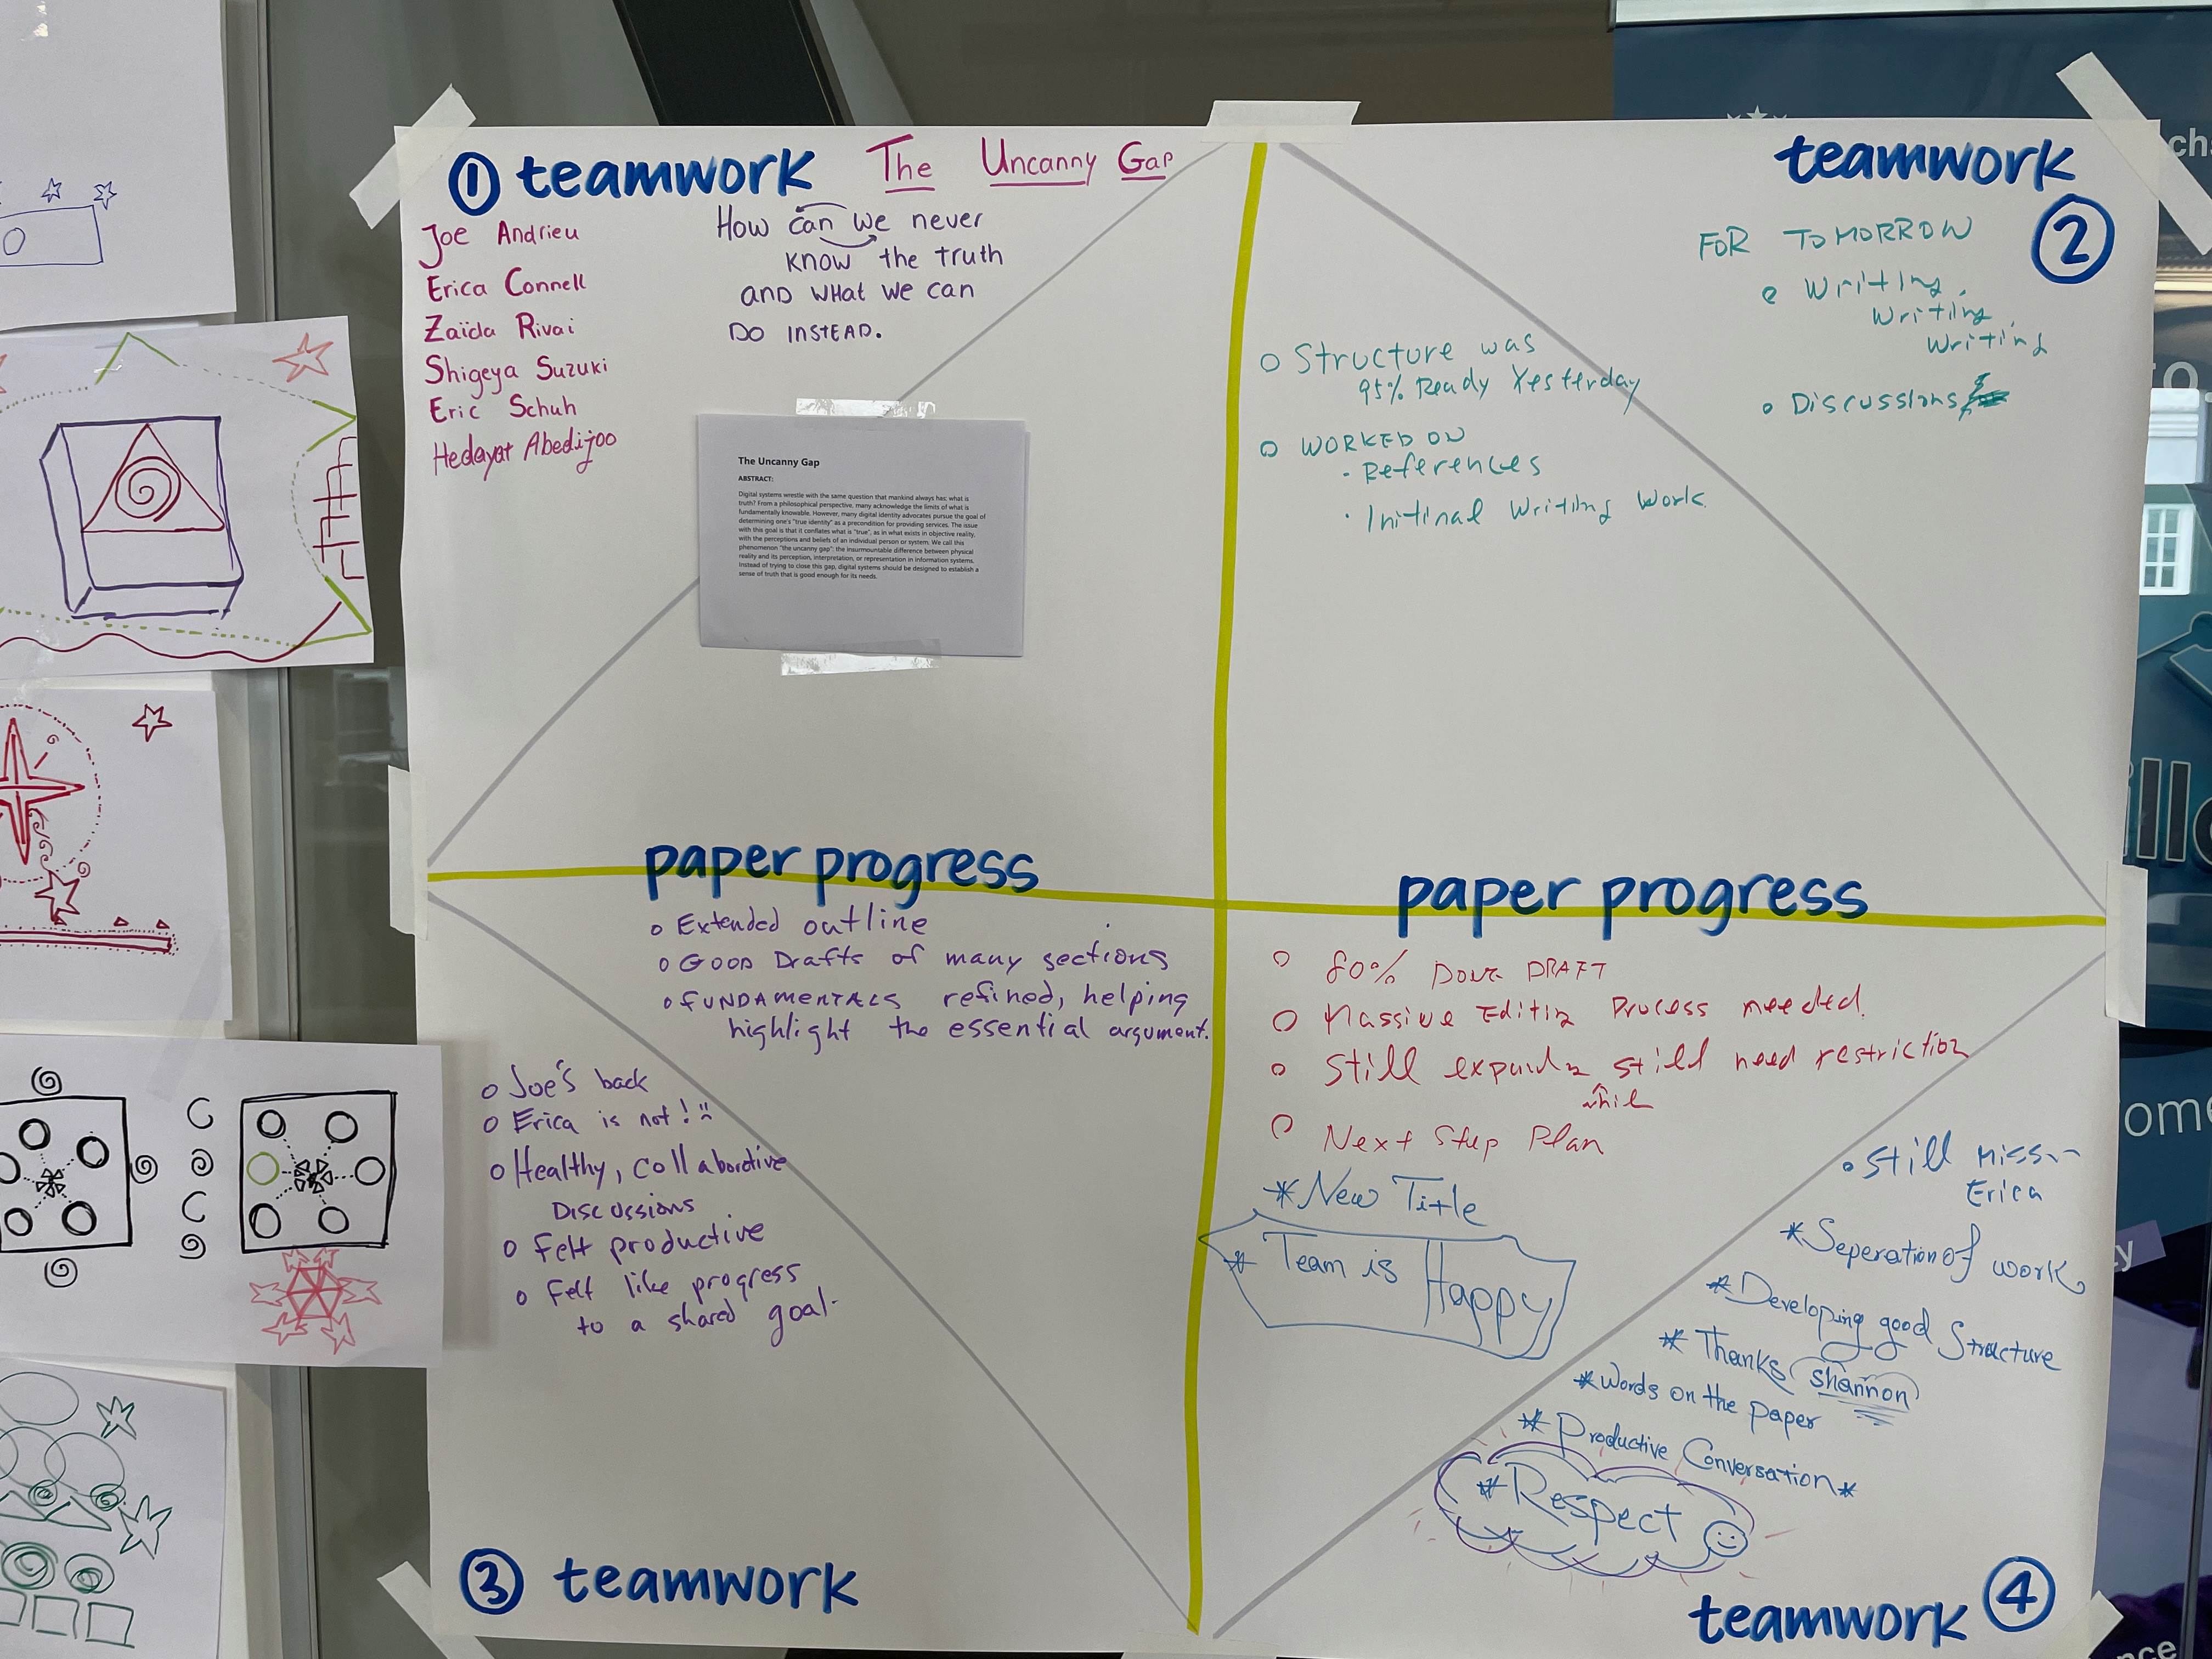 ① teamwork
The Uncanny Gap
Joe Andrieu
Erica Connell
Zaïda Rivai
Shigeya Suzuki
Eric Schuh
Hedayat Abedijoo
How can we never
know the truth
and what we can
do instead.
The Uncanny Gap
ABSTRACT:
Digital systems wrestle with the same question that mankind always has: what is
truth? From a philosophical perspective, many acknowledge the limits of what is
fundamentally knowable. However, many digital identity advocates pursue the goal of
determining one's "true identity" as a precondition for providing services. The issue
with this goal is that it conflates what is "true", as in what exists in objective reality,
with the perceptions and beliefs of an individual person or system. We call this
phenomenon "the uncanny gap": the insurmountable difference between physical
reality and its perception, interpretation, or representation in information systems.
Instead of trying to close this gap, digital systems should be designed to establish a
sense of truth that is good enough for its needs.
teamwork
②
FOR TOMORROW
Writing,
Writing,
Writing
Discussions
Structure was
95% Ready Yesterday
WORKED ON
References
Initinal Writing Work
paper progress
Extended outline
Good Drafts of many sections
FUNDAMENTALS refined, helping
highlight the essential argument.
Joe's back
Erica is not! :(
Healthy, collabordive
Discussions
Felt productive
Felt like progress
to a shared goal.
③ teamwork
paper progress
80% DONE DRAFT
Massive Editing Process needed.
Still expanding still need restriction
while
Next Step Plan
* New Title
* Team is Happy
Still Missing
Erica
* Seperation of work
* Developing good Structure
* Thanks shannon
* Words on the paper
* Productive Conversation *
* Respect
teamwork ④
ch
to
ille
ome
y
nce